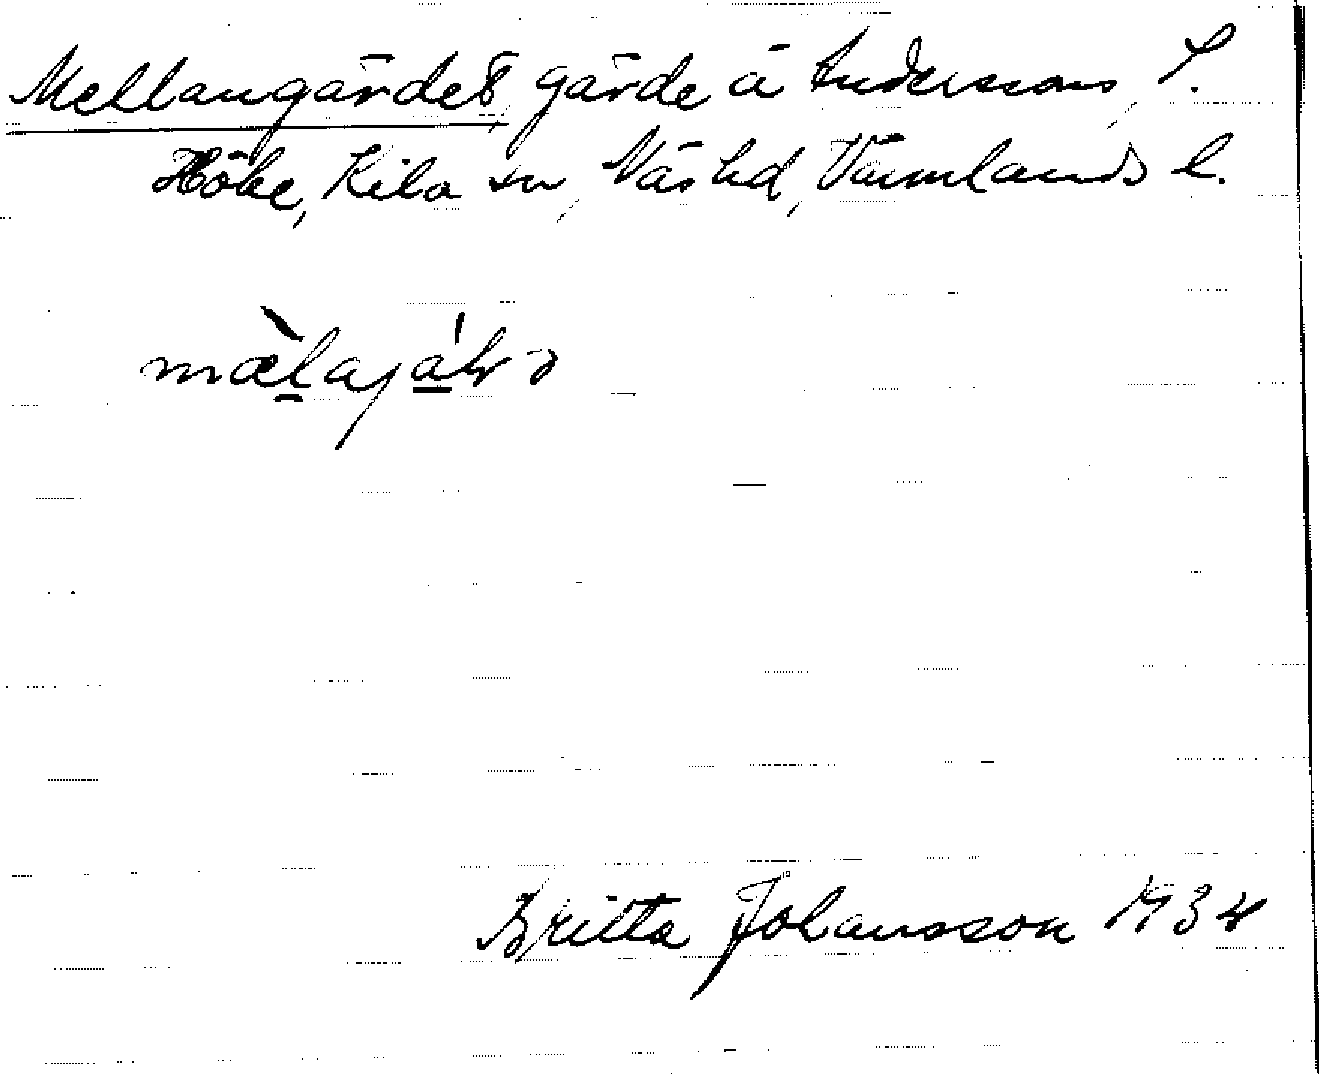 Mellangärdet, gärde å Anderssons, S.
Höke, Kila sn, Näs hd, Värmlands l.
Britta Johansson 1934